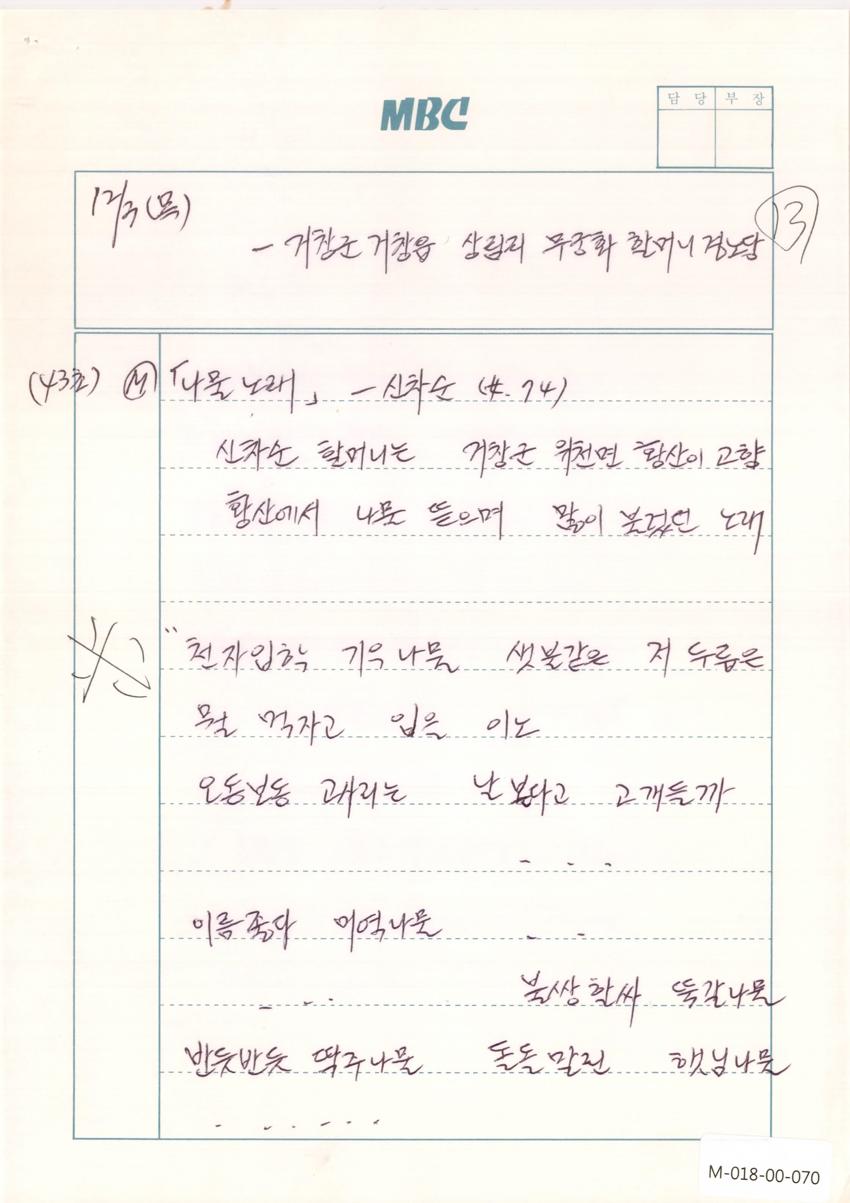 MBC
담 당 부 장
12/3 (목)
13
- 거창군 거창읍 상림리 무궁화 할머니 경노당
(43초) M 「나물 노래」 - 신차순 (#. 74)
신차순 할머니는 거창군 위천면 황산이 고향
황산에서 나물 뜯으며 많이 부렀던 노래
"천자입학 기우나물 샛불같은 저 두릅은
뭐 먹자고 입을 이노
오동보동 고사리는 날 봤다고 고개들까
- - -
이름좋다 미역나물 - -
- - - 불쌍할싸 뚝갈나물
반듯반듯 딱주나물 돌돌말린 햇님나물
- - - - - -
M-018-00-070